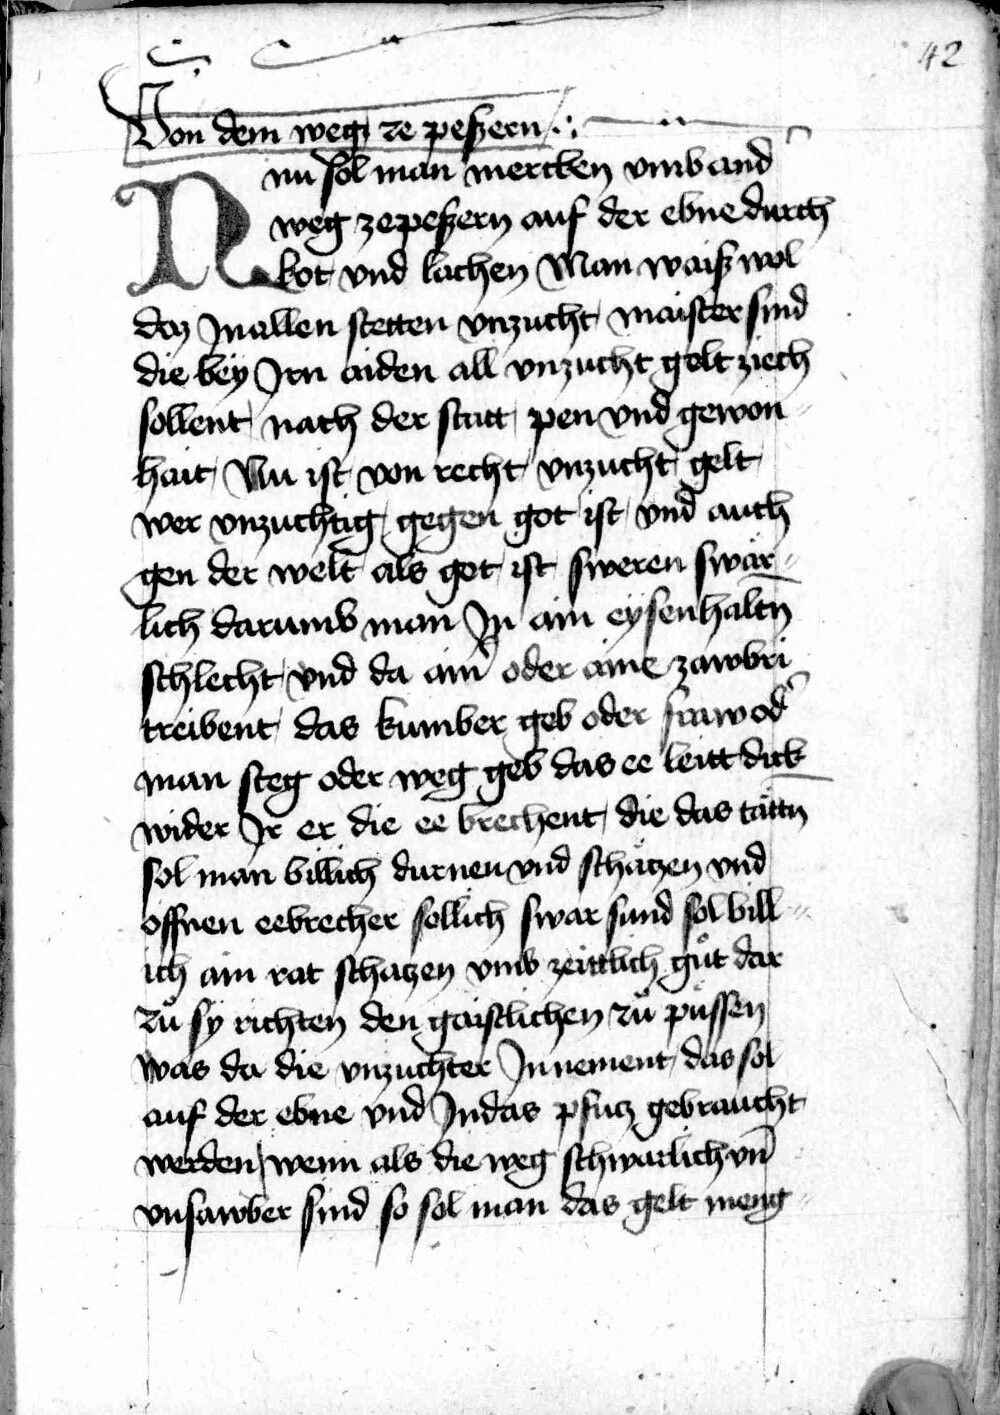 42
Von dem weg ze peßern
Nu sol man mercken vmb and
weg ze peßern auf der ebne durch
kot vnd lachen Man waiß wol
daz Jn allen stetten vnzucht maister sind
die bey Jrn aiden all vnzucht gelt ziech
sollent nach der statt pen vnd gewon-
hait Nu ist von recht vnzucht gelt
wer vnzuchtig gegen got ist vnd auch
gen der welt als got ist sweren swär-
lich darumb man Jn ain eysenhaltn
schlecht vnd da ain oder aine zawbri
treibent das kumber geb oder fraw od
man steg oder weg geb das ee leitt dick
wider Jr er die ee brechent die das tättn
sol man billich durnen vnd schätzen vnd
offnen eebrecher sollich swar sund sol bill-
ich ain rat schatzen vmb zeittlich gůt dar
zů sy richten den gaistlichen zů půssen
was da die vnzuchter Jn nement das sol
auf der ebne vnd Jn das pfutz gebraucht
werden wenn als die weg schwarlich vn̄
vnsawber sind so sol man das gelt meng-